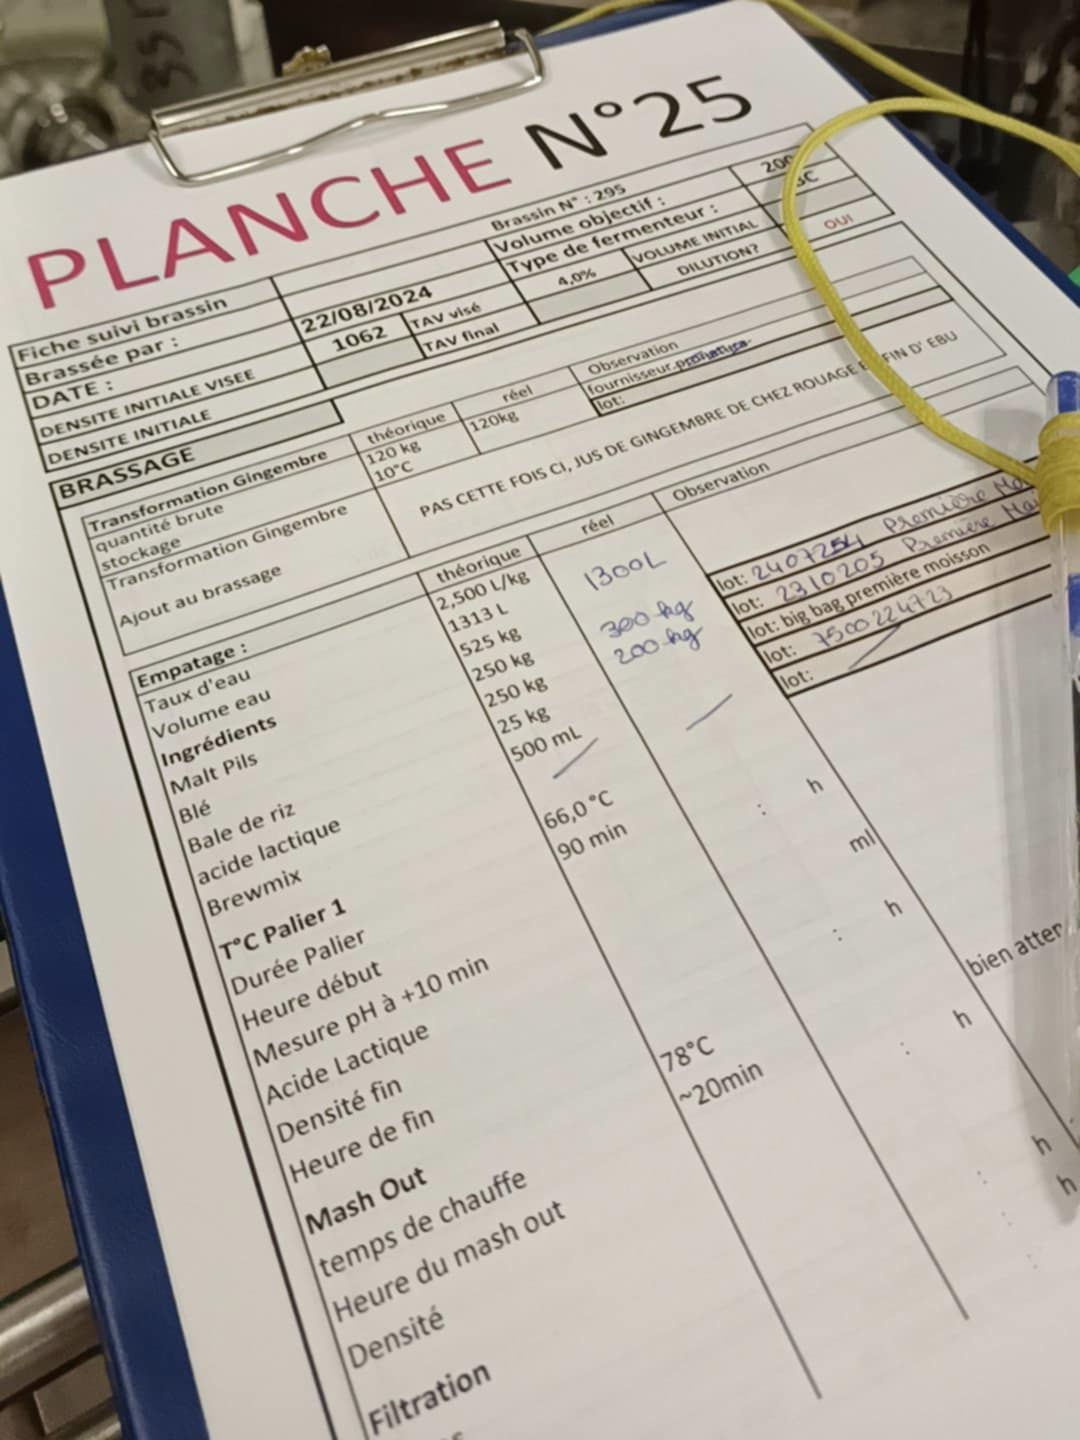 PLANCHE N°25
Fiche suivi brassin
Brassin N° : 295
Brassée par :
Volume objectif :
DATE : 22/08/2024
Type de fermenteur :
DENSITE INITIALE VISEE 1062 TAV visé 4,0% VOLUME INITIAL
DENSITE INITIALE TAV final DILUTION? OUI
BRASSAGE
Transformation Gingembre théorique réel Observation
quantité brute 120 kg 120kg fournisseur
stockage 10°C lot:
Transformation Gingembre
Ajout au brassage PAS CETTE FOIS CI, JUS DE GINGEMBRE DE CHEZ ROUAGE FIN D' EBU
Empatage : théorique réel Observation
Taux d'eau 2,500 L/kg
Volume eau 1313 L 1300L
Ingrédients 525 kg
Malt Pils 250 kg 300 kg lot: Première
Blé 250 kg 200 kg lot: 2310205 Première
Bale de riz 25 kg lot: big bag première moisson
acide lactique 500 mL lot: 7500224723
Brewmix lot:
T°C Palier 1 66,0°C
Durée Palier 90 min
Heure début : h
Mesure pH à +10 min
Acide Lactique ml
Densité fin
Heure de fin : h
Mash Out 78°C
temps de chauffe ~20min
Heure du mash out : h
Densité
bien
Filtration
: h
h